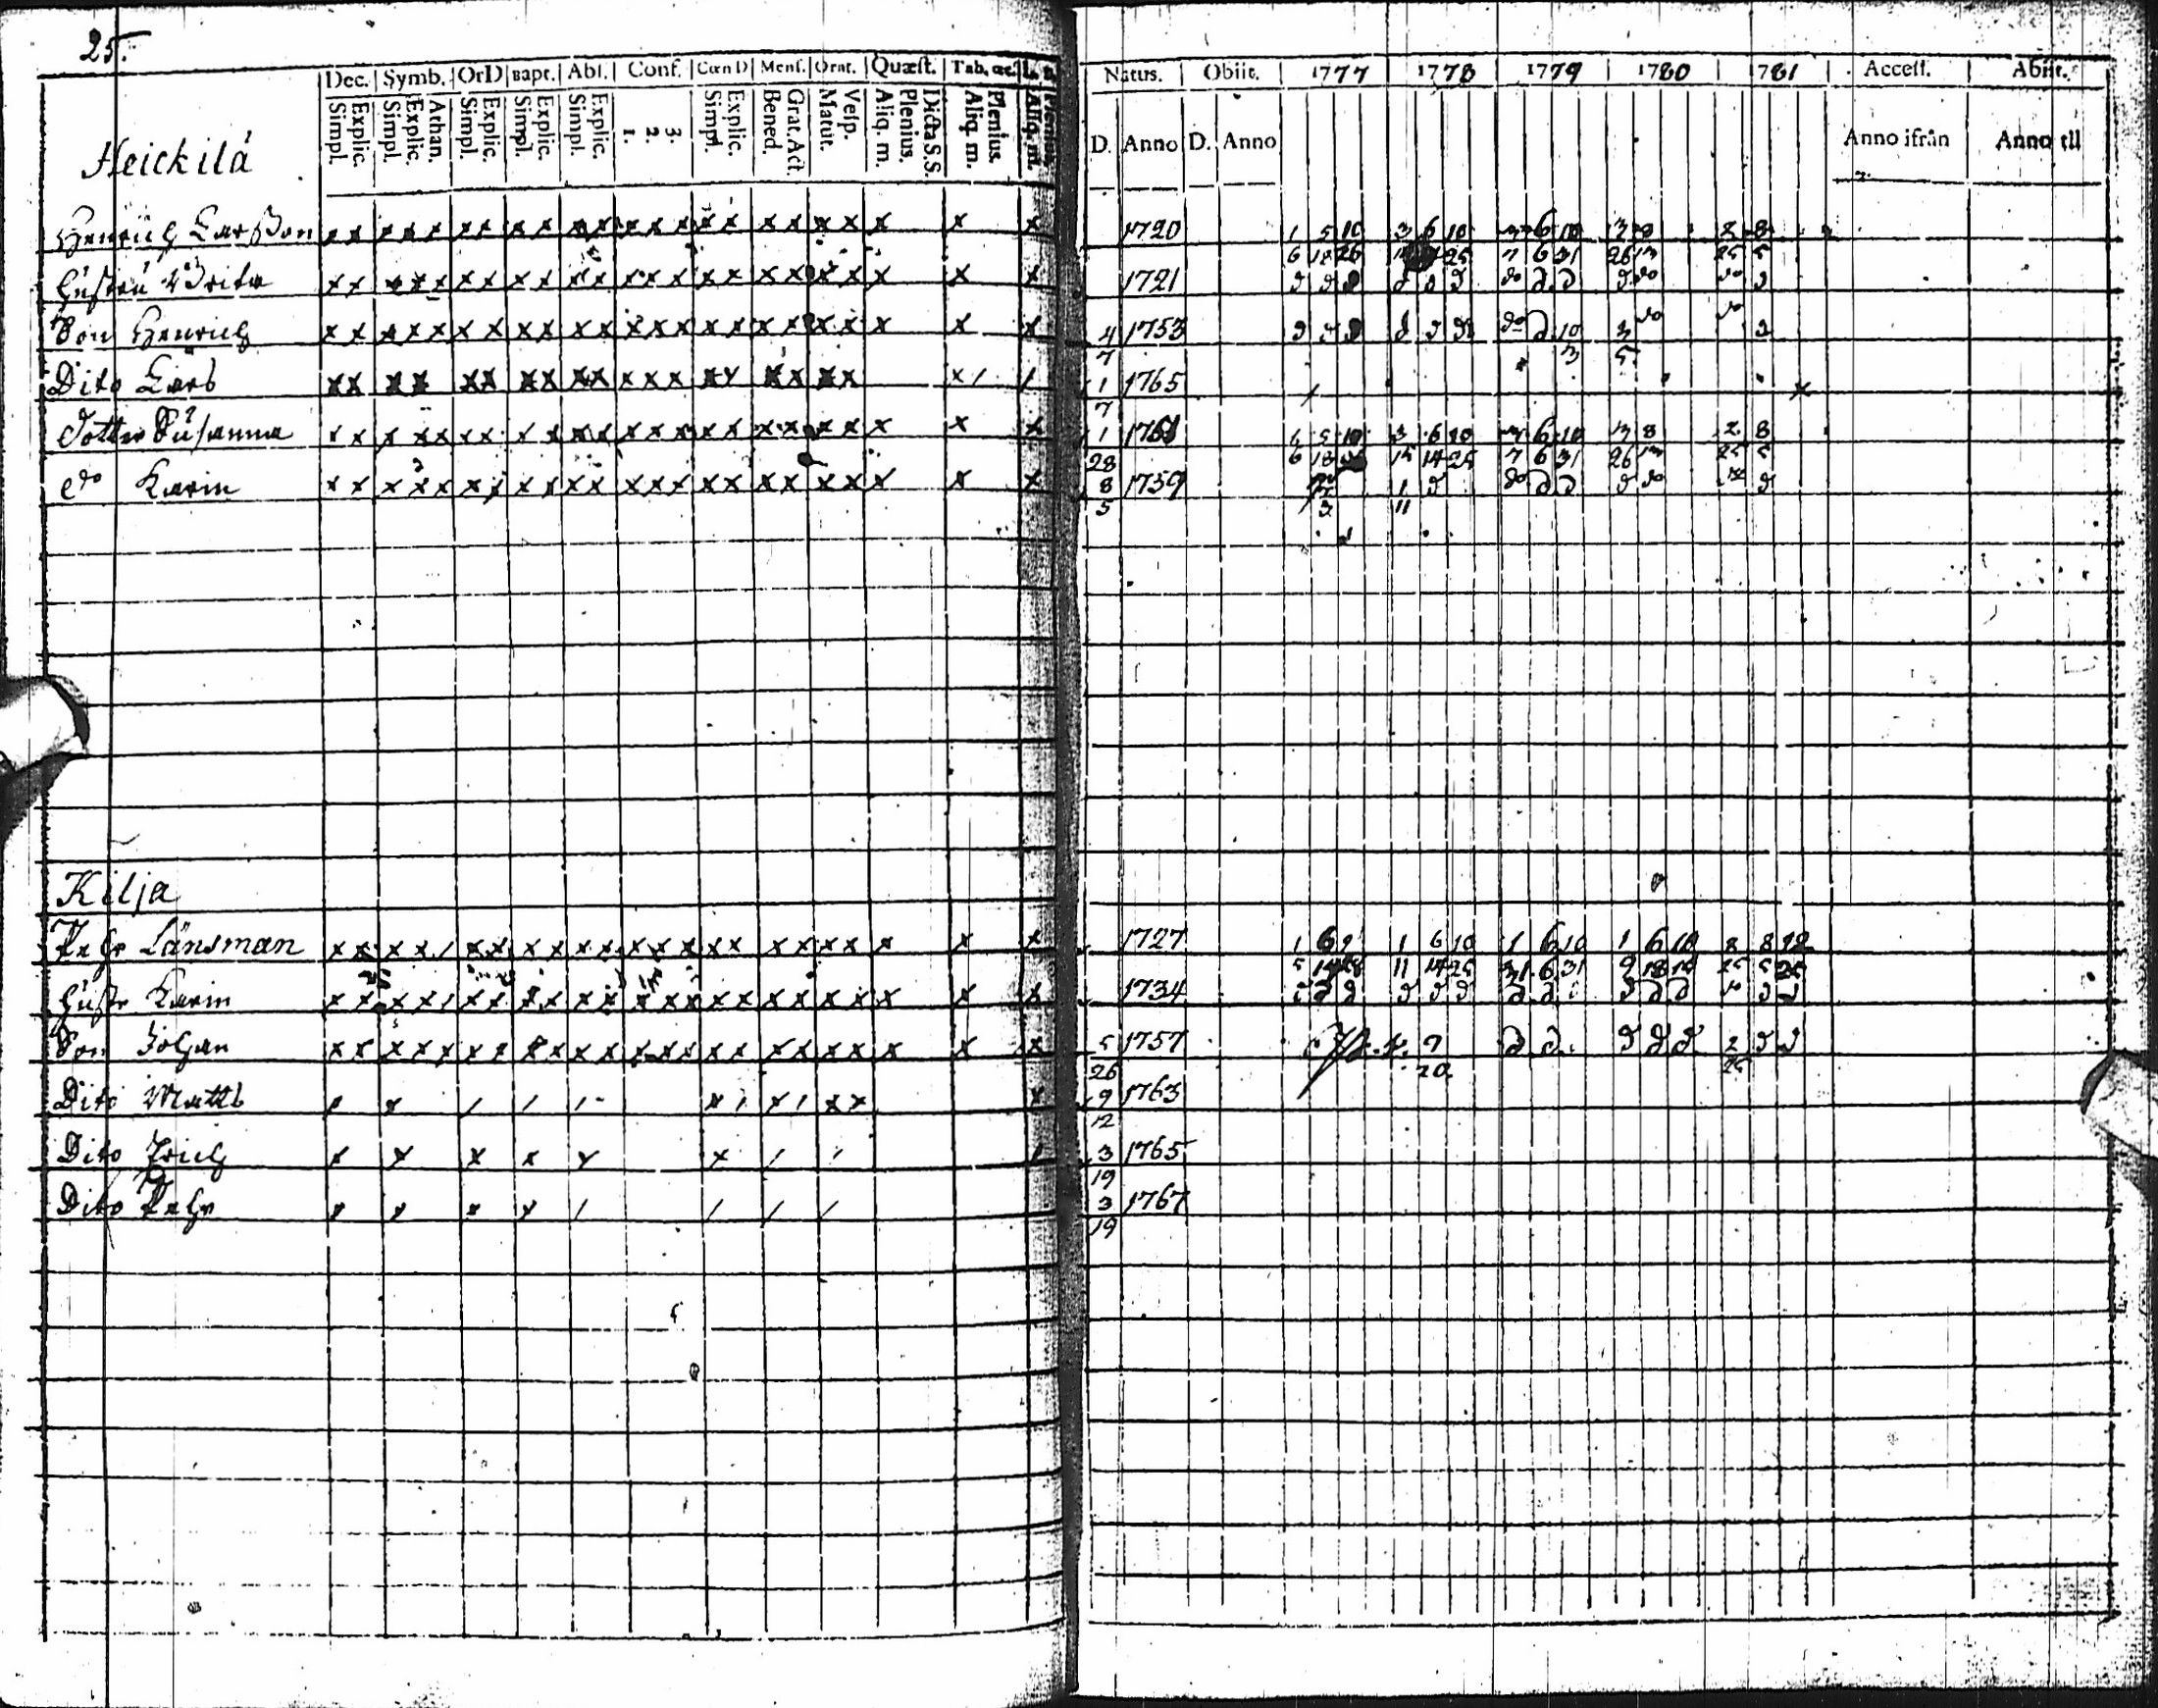 25.
Dec. Symb. OrD Bapt. Abs. Conf. Cœn D Mens. Orat. Quæst. Tab. œc. Natus. Obiit. 1777 1778 1779 1780 1781 Access. Abiit.
Simpl. Explic. Simpl. Explic. Athan. Simpl. Explic. Simpl. Explic. Simpl. Explic. 1. 2. 3. Simpl. Explic. Bened. Grat. Act. Matut. Vesp. Aliq. m. Plenius. Dicta S.S. Aliq. m. Plenius. Aliq. m. Plenius. D. Anno D. Anno Anno ifrån Anno till
Heickilä
Henrich Larsson x x x x x x x x x x x x x x x x x x x x x x 1720 1 5 10 3 6 10 3 6 10 3 8 2 8
6 18 26 25 7 6 31 26 13 25 5
Hustru Brita x x x x x x x x x x x x x x x x x x x x x x 1721 d d d d d d do d d d do do d
Son Henrich x x x x x x x x x x x x x x x x x x x x x x 4 1753 d d d d d do d 10 3 do do d
7 3 5
Dito Lars x x x x x x x x x x x x x x x x x x x x / / 1 1765
7
Dotter Susanna x x x x x x x x x x x x x x x x x x x x x x 1 1761 5 10 3 6 10 3 6 10 3 8 2 8
28 6 18 14 25 7 6 31 26 13 25 5
do Karin x x x x x x x x x x x x x x x x x x x x x x 8 1759 1 d do d d d do d
5 3 11
Kilja
Pehr Länsman x x x x / x x x x x x x x x x x x x x x x x x 1727 1 6 9 1 6 10 1 6 10 1 6 10 2 8 12
5 11 14 25 31 6 31 9 18 25 5 25
Hustr Karin x x x x / x x x x x x x x x x x x x x x x x x 1734 d d d d d d d d d d d d d
Son Johan x x x x x x x x x x x x x x x x x x x x x x x 5 1757 7 d d d d d 2 d d
26 20 25
Dito Matts x x / / / x / x / x x x 9 1763
12
Dito Erich x x x x x x / / / 3 1765
19
Dito Pehr x x x x / / / / 3 1767
19